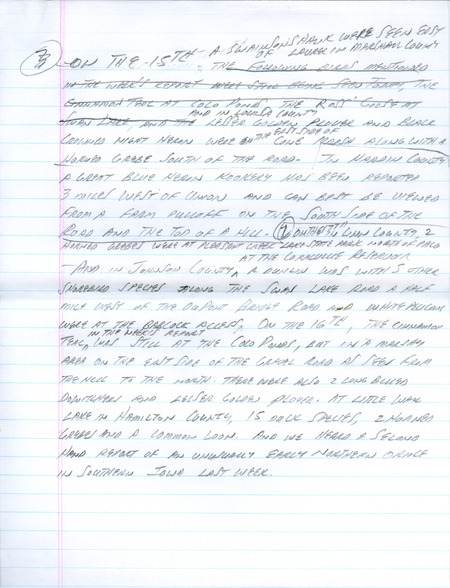 3 ON THE 15TH - A SWAINSON'S HAWK WERE SEEN EAST
OF LAUREL IN MARSHALL COUNTY
, THE FOLLOWING BIRDS MENTIONED
IN THE WEEK'S REPORT WERE STILL BEING SEEN TODAY, THE
CINNAMON TEAL AT COLO PONDS, THE ROSS' GOOSE AT
AND IN LOUISA COUNTY
SWAN LAKE, AND THE LESSER GOLDEN PLOVER AND BLACK
ON THE EAST SIDE OF
CROWNED NIGHT HERON WERE AT CONE MARSH ALONG WITH A
HORNED GREBE SOUTH OF THE ROAD - IN HARDIN COUNTY
A GREAT BLUE HERON ROOKERY HAS BEEN REPORTED
3 MILES WEST OF UNION AND CAN BEST BE VIEWED
FROM A FARM PULLOFF ON THE SOUTH SIDE OF THE
ROAD AND THE TOP OF A HILL - ON THE IN LINN COUNTY, 2
HORNED GREBES WERE AT PLEASANT CREEK LAKE STATE PARK NORTH OF PALO
AT THE CORALVILLE RESERVOIR
- AND IN JOHNSON COUNTY, A DUNLIN WAS WITH 5 OTHER
SHOREBIRD SPECIES ALONG THE SWAN LAKE ROAD A HALF
MILE WEST OF THE DUPONT BRIDGE ROAD AND WHITE PELICANS
WERE AT THE BABCOCK ACCESS, ON THE 16TH, THE CINNAMON
IN THE WEEK'S REPORT
TEAL, WAS STILL AT THE COLO PONDS, BUT IN A MARSHY
AREA ON THE EAST SIDE OF THE GRAVEL ROAD AS SEEN FROM
THE HILL TO THE NORTH. THERE WERE ALSO 2 LONG BILLED
DOWITCHERS AND LESSER GOLDEN PLOVER. AT LITTLE WALL
LAKE IN HAMILTON COUNTY, 15 DUCK SPECIES, 2 HORNED
GREBES AND A COMMON LOON. AND WE HEARD A SECOND
HAND REPORT OF AN UNUSUALLY EARLY NORTHERN ORIOLE
IN SOUTHERN IOWA LAST WEEK.